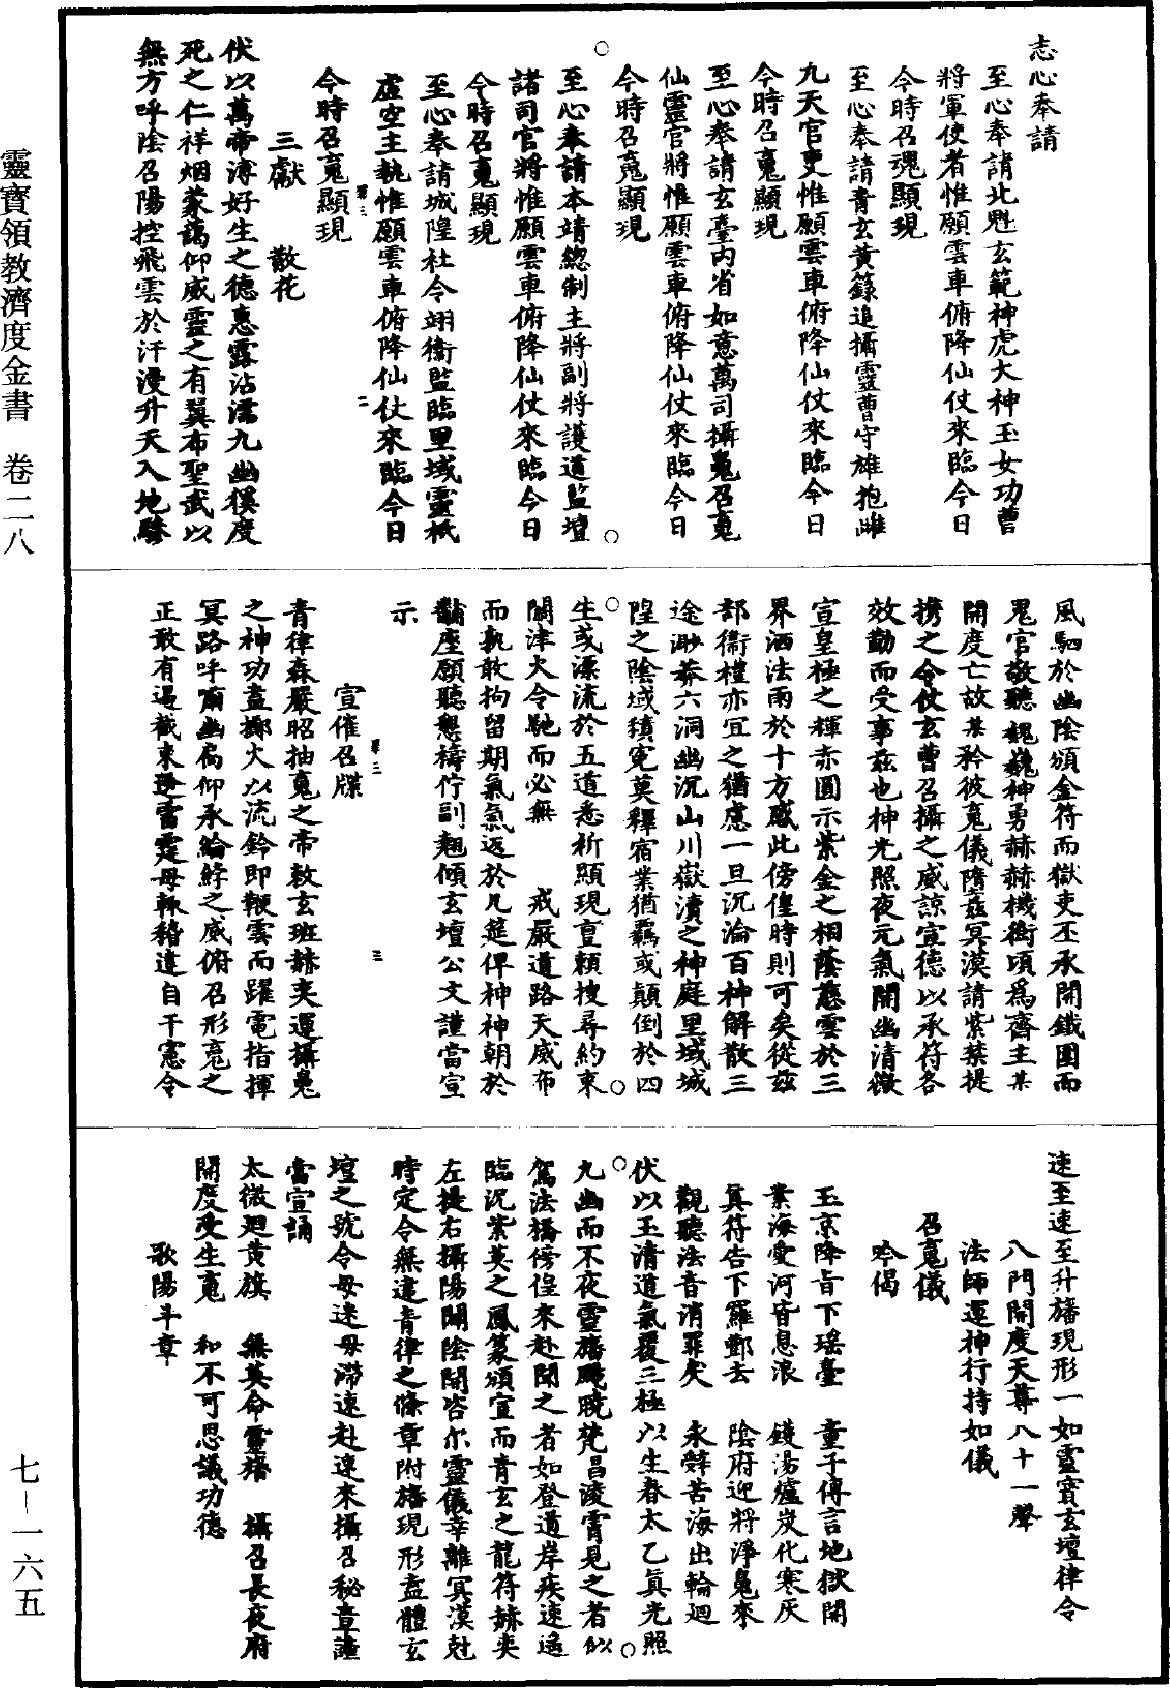 志心奉請
至心奉請北魁玄範神虎大神玉女功曹
將軍使者惟願雲車俯降仙仗來臨今日
今時召魂顯現
至心奉請青玄黃籙追攝靈曹守雄抱雌
九天官吏惟願雲車俯降仙仗來臨今日
今時召䰟顯現
至心奉請玄臺內省如意萬司攝䰟召䰟
仙靈官將惟願雲車俯降仙仗來臨今日
今時召䰟顯現
至心奉請本靖總制主將副將護道監壇
諸司官將惟願雲車俯降仙仗來臨今日
今時召䰟顯現
至心奉請城隍社令翊衛監臨里域靈祇
虛空主執惟願雲車俯降仙仗來臨今日
今時召䰟顯現
三獻 散花
伏以萬帝溥好生之德惠露沾濡九幽徯度
死之仁祥烟蒙靄仰威靈之有翼布聖武以
無方呼陰召陽控飛雲於汗漫升天入地驂
風駟於幽陰頒金符而獄吏丕承開鐵圍而
鬼官敬聽巍巍神勇赫赫機衡頃爲齋主某
開度亡故某矜彼䰟儀隋茲冥漠請紫禁提
携之令仗玄曹召攝之威諒宣德以承符各
效勤而受事茲也神光照夜元氣開幽清微
宣皇極之輝赤圓示紫金之相蔭慈雲於三
界洒法雨於十方感此傍偟時則可矣從茲
部衛權亦宜之猶慮一旦沉淪百神解散三
途渺莽六洞幽沉山川嶽瀆之神庭里域城
隍之陰域積寃莫釋宿業猶羈或顛倒於四
生或漂流於五道悉祈顯現亶頼搜尋約束
關津大令馳而必無 戒嚴道路天威布
而孰敢拘留期氣氣返於几筵俾神神朝於
黼座願聽懇禱佇訓翹傾玄壇公文謹當宣
示
宣催召牒
青律森嚴昭抽䰟之帝敕玄班赫奕運攝䰟
之神功盍擲火以流鈴即鞭雲而躍電指揮
冥路呼爾幽扃仰承綸綍之威俯召形䰟之
正敢有遏截束逐雷霆毋輒稽違自干憲令
速至速至升旛現形一如靈寳玄壇律令
八門開度天尊八十一聲
法師運神行持如儀
召䰟儀
吟偈
玉京降旨下瑶臺 童子傳言地獄開
業海愛河皆息浪 鑊湯爐炭化寒灰
眞符告下羅酆去 陰府迎將淨䰟來
觀聽法音消罪戾 永辭苦海出輪迴
伏以玉清道氣覆三極以生春太乙眞光照
九幽而不夜靈旛颺曉梵昌凌霄見之者似
駕法橋傍偟來赴聞之者如登道岸疾速遙
臨況紫英之鳳篆頒宣而青玄之龍符赫奕
左提右攝陽關陰開咨尓靈儀幸離冥漠尅
時定令無違青律之條章附旛現形盍體玄
壇之號令毋迷毋滞速赴速來攝召秘章謹
當宣誦
太微廻黃旗 無英命靈旛 攝召長夜府
開度受生䰟 和不可思議功德
歌陽斗章
靈寳領教濟度金書 卷二八
七-一六五